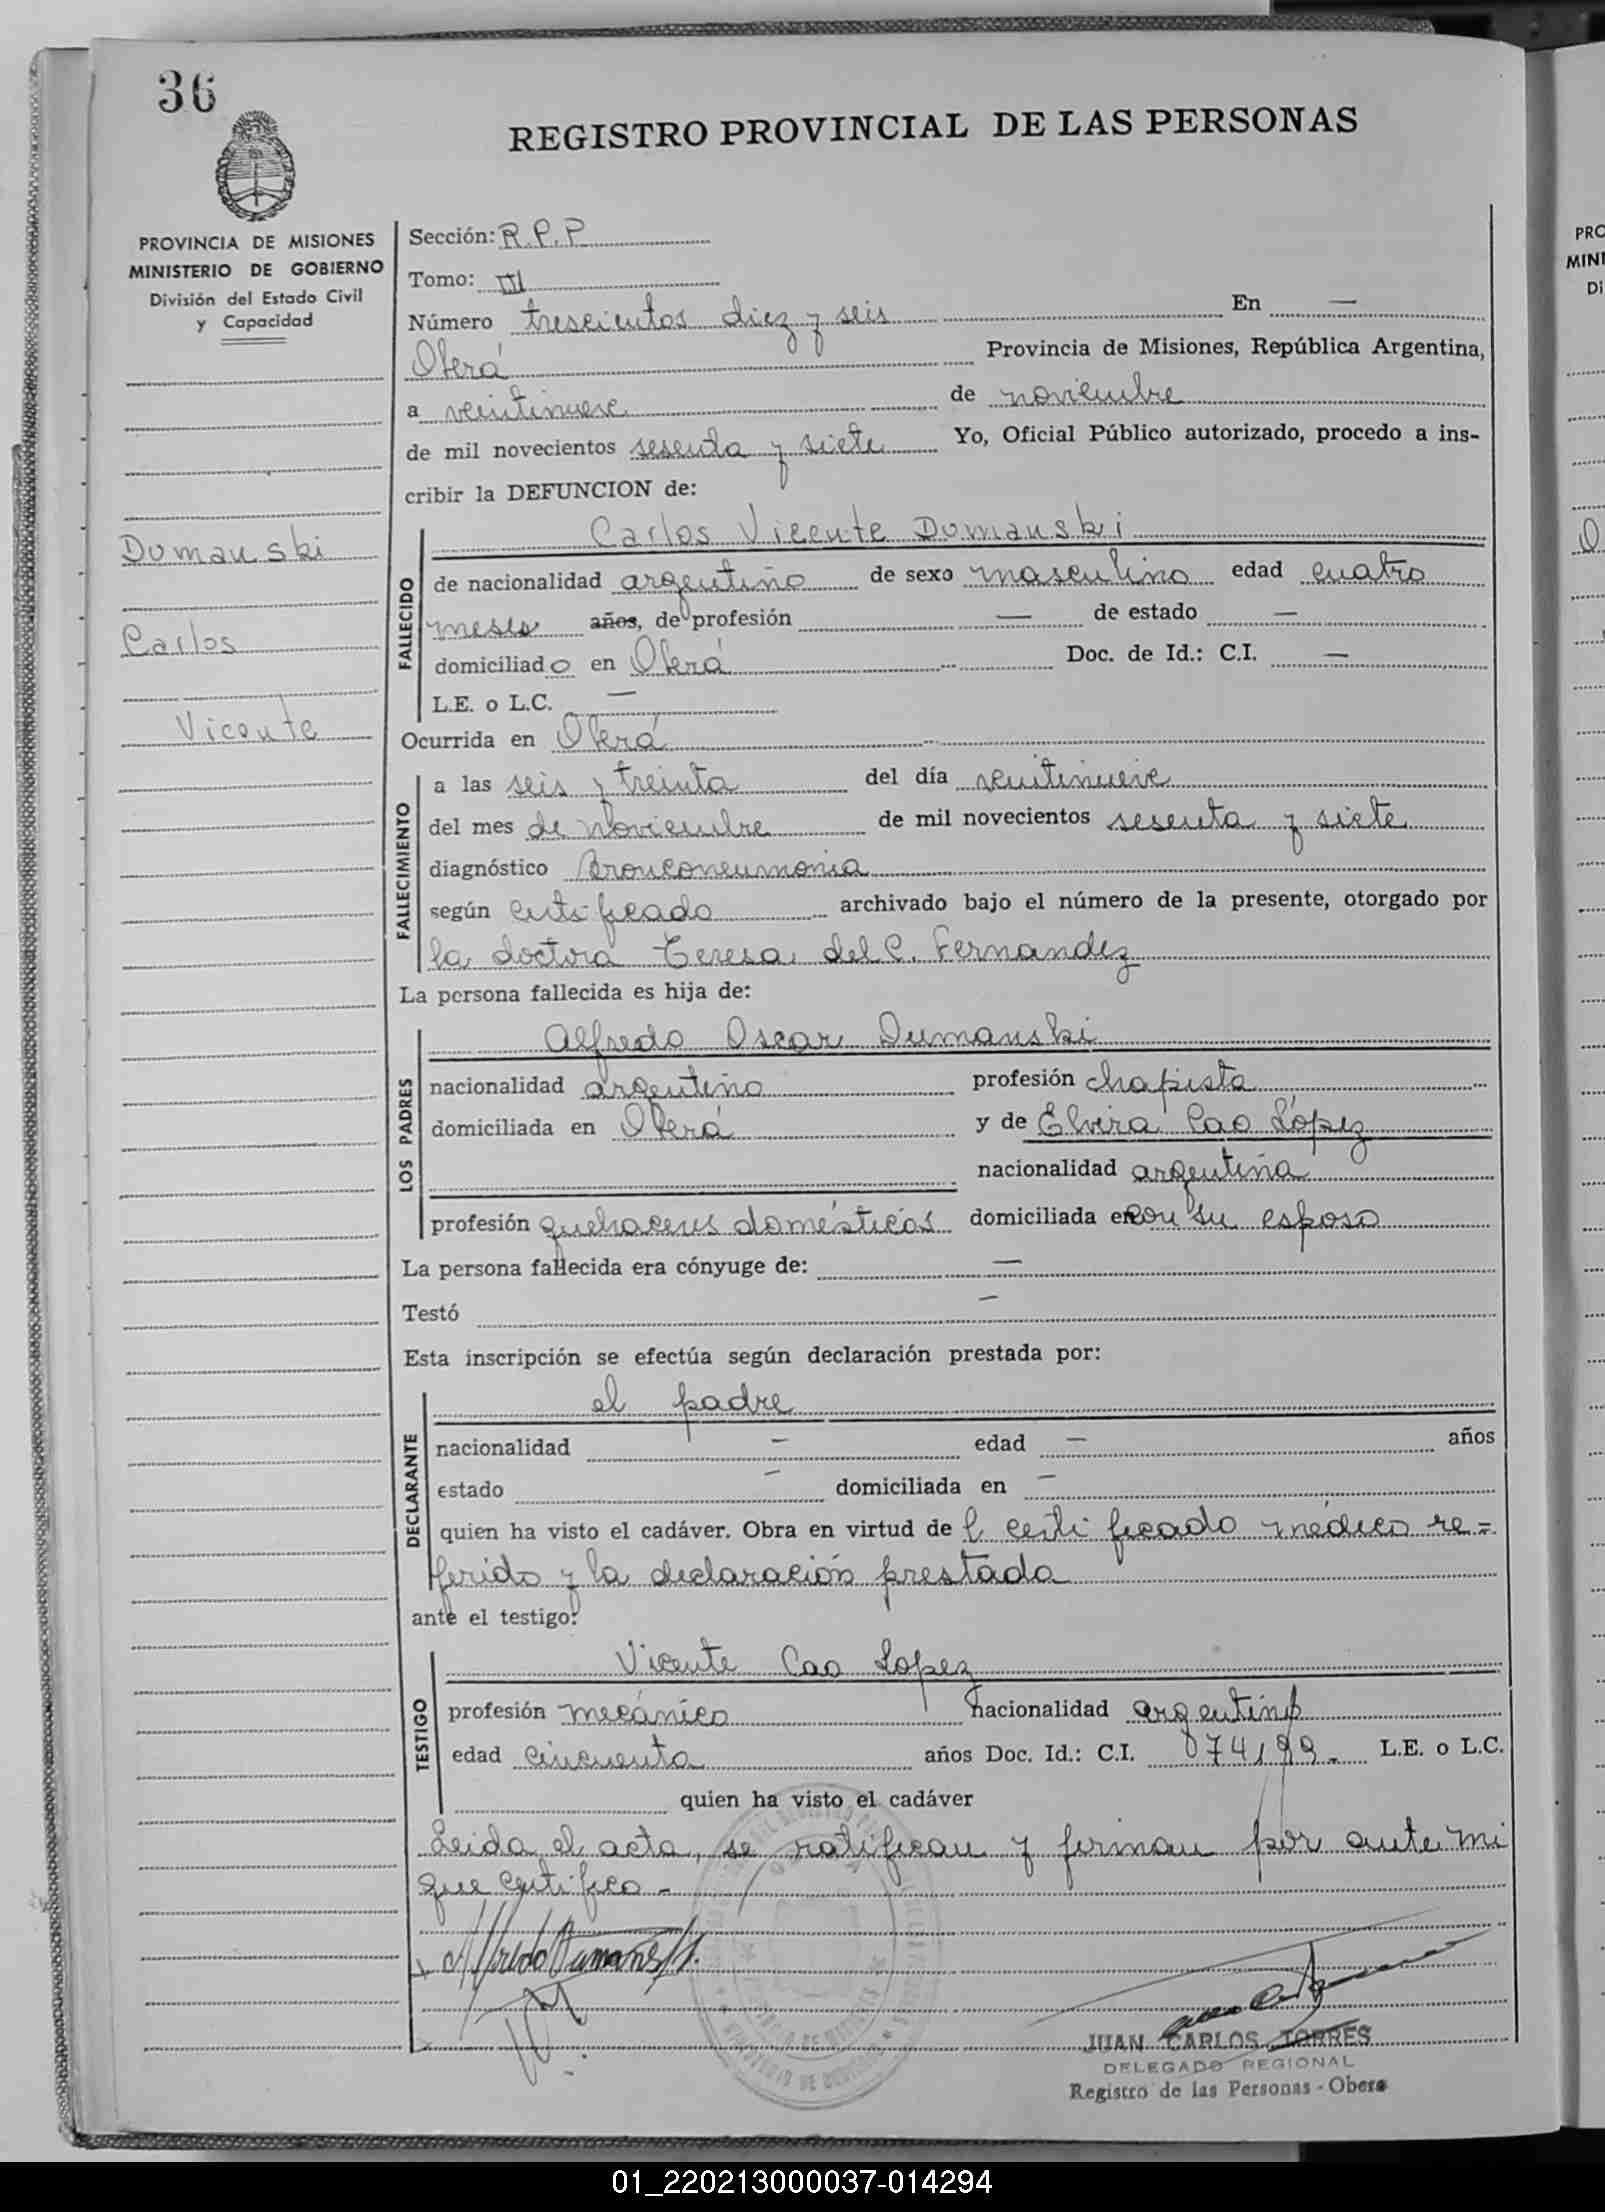 36
REGISTRO PROVINCIAL DE LAS PERSONAS
PROVINCIA DE MISIONES
MINISTERIO DE GOBIERNO
División del Estado Civil
y Capacidad
Sección: R.P.P
Tomo: III
Número trescientos diez y seis En —
Oberá Provincia de Misiones, República Argentina,
a veintinueve de noviembre
de mil novecientos sesenta y siete Yo, Oficial Público autorizado, procedo a ins-
cribir la DEFUNCION de:
Dumanski
Carlos
Vicente
FALLECIDO
Carlos Vicente Dumanski
de nacionalidad argentino de sexo masculino edad cuatro
meses años, de profesión — de estado —
domiciliado en Oberá Doc. de Id.: C.I. —
L.E. o L.C. —
Ocurrida en Oberá
FALLECIMIENTO
a las seis y treinta del día veintinueve
del mes de noviembre de mil novecientos sesenta y siete
diagnóstico Bronconeumonia
según certificado archivado bajo el número de la presente, otorgado por
la doctora Teresa del C. Fernandez
La persona fallecida es hija de:
LOS PADRES
Alfredo Oscar Dumanski
nacionalidad argentino profesión chapista
domiciliada en Oberá y de Elvira Cao López
nacionalidad argentina
profesión quehaceres domésticos domiciliada en con su esposo
La persona fallecida era cónyuge de: —
Testó —
Esta inscripción se efectúa según declaración prestada por:
DECLARANTE
el padre
nacionalidad — edad — años
estado — domiciliada en —
quien ha visto el cadáver. Obra en virtud de l certificado médico re=
ferido y la declaración prestada
ante el testigo:
TESTIGO
Vicente Cao Lopez
profesión mecánico nacionalidad argentino
edad cincuenta años Doc. Id.: C.I. 074199.- L.E. o L.C.
quien ha visto el cadáver
Leida el acta, se ratifican y firman por ante mi
que certifico -
Alfredo Dumanski
JUAN CARLOS TORRES
DELEGADO REGIONAL
Registro de las Personas - Obera
PRO
MINI
Di
D
01_220213000037-014294